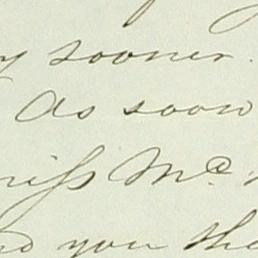 sooner.
As soon
Miss Mc
you the